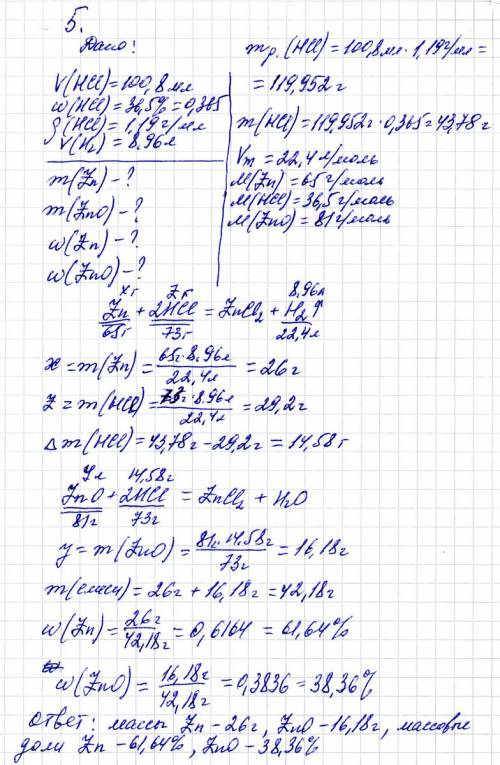 5.
Дано:
V(HCl)=100,8 мл
ω(HCl)=36,5%=0,365
ρ(HCl)=1,19 г/мл
V(H₂)=8,96 л
m(Zn)-?
m(ZnO)-?
ω(Zn)-?
ω(ZnO)-?
mр.(HCl)=100,8мл·1,19г/мл=
=119,952 г
m(HCl)=119,952г·0,365=43,78 г
Vm=22,4 л/моль
M(Zn)=65 г/моль
M(HCl)=36,5 г/моль
M(ZnO)=81 г/моль
xг zг 8,96л
Zn + 2HCl = ZnCl₂ + H₂↑
65г 73г 22,4л
x=m(Zn)=65г·8,96л/22,4л=26г
z=m(HCl)=73г·8,96л/22,4л=29,2г
Δm(HCl)=43,78г-29,2г=14,58г
14,58г
ZnO+2HCl=ZnCl₂+H₂O
81г 73г
y=m(ZnO)=81г·14,58г/73г=16,18г
m(смеси)=26г+16,18г=42,18г
ω(Zn)=26г/42,18г=0,6164=61,64%
ω(ZnO)=16,18г/42,18г=0,3836=38,36%
Ответ: массы Zn-26г, ZnO-16,18г, массовые
доли Zn-61,64%, ZnO-38,36%